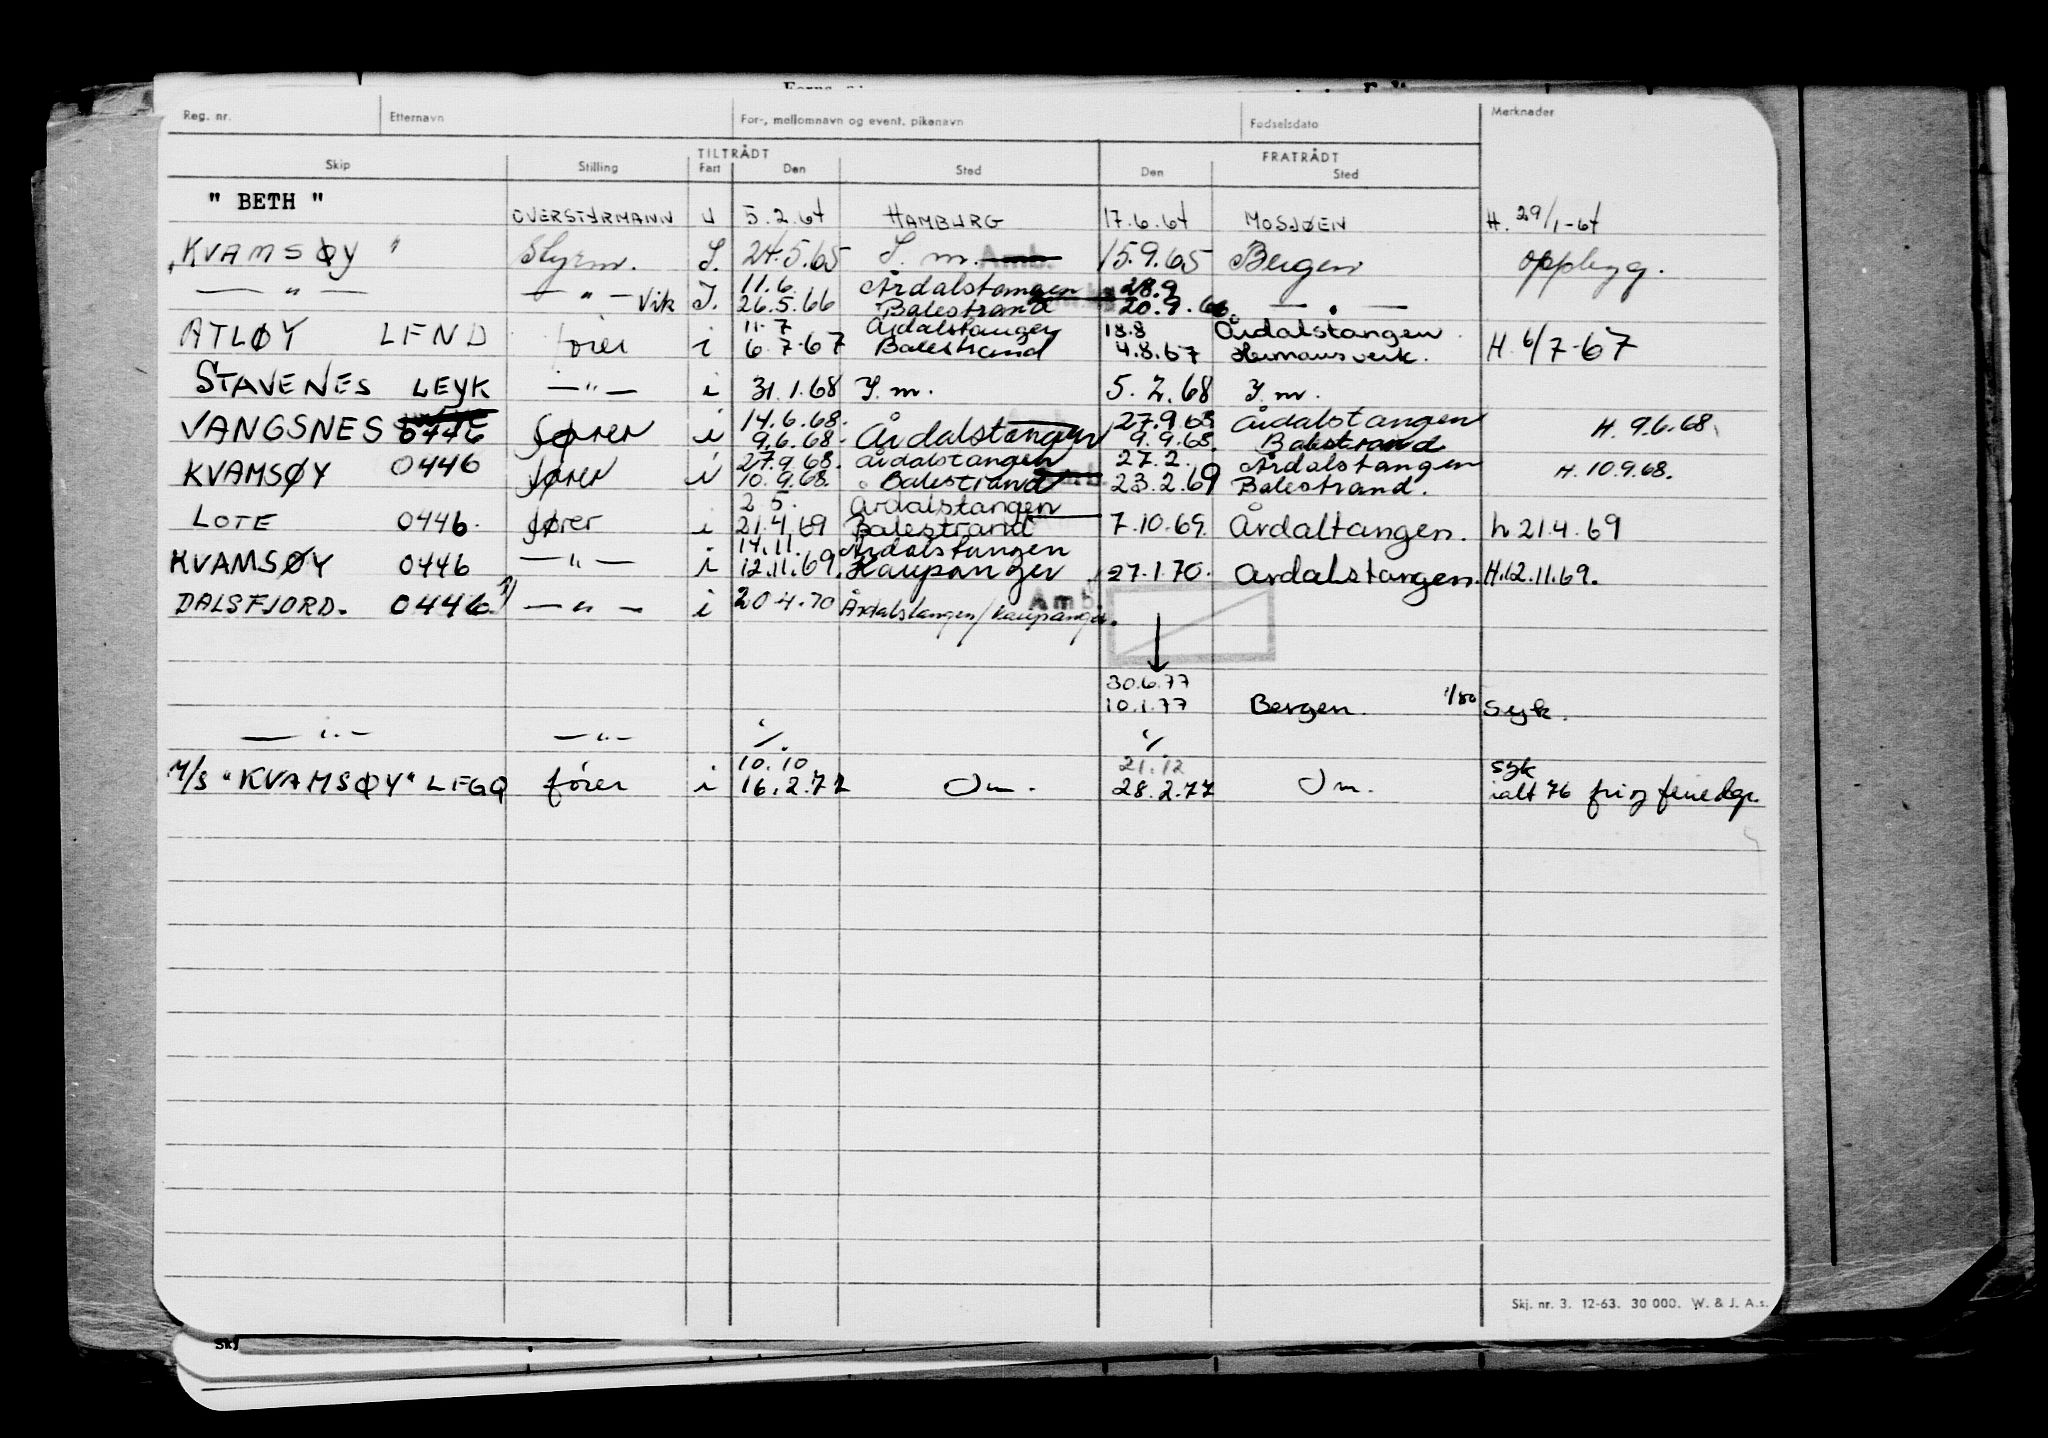 Reg. nr. Etternavn For-, mellomnavn og event. pikenavn Fødselsdato Merknader
TILTRÅDT FRATRÅDT
Skip Stilling Fart Den Sted Den Sted
" BETH "
OVERSTYRMANN U 5.2.64 HAMBURG 17.6.64 MOSJØEN H. 29/1-64
"KVAMSØY" Styrm. I. 24.5.65 I. m. Amb. 15.9.65 Bergen oppbyg.
11.6. Årdalstangen 28.9
— " — — " — Vik I. 26.5.66 Balestrand 20.9.66 — " —
11.7 Årdalstangen 18.8 Årdalstangen
ATLØY LEND fører i 6.7.67 Balestrand 4.8.67 Hermansverk. H. 6/7-67
STAVENES LEYK — " — i 31.1.68 I. m. 5.2.68 I. m.
14.6.68. 27.9.68 Årdalstangen
VANGSNES 0446 fører i 9.6.68. Årdalstangen 9.9.68. Balestrand H. 9.6.68.
27.9.68. Årdalstangen 27.2. Årdalstangen
KVAMSØY 0446 fører i 10.9.68. Balestrand 23.2.69 Balestrand. H. 10.9.68.
2.5. Årdalstangen
LOTE 0446. fører i 21.4.69 Balestrand 7.10.69. Årdaltangen. h 21.4.69
14.11. Årdalstangen
KVAMSØY 0446 — " — i 12.11.69. Kaupanger 27.1.70. Årdalstangen. H.12.11.69.
DALSFJORD. 0446. — " — i 20.4.70 Årdalstangen/Kaupanger. Amb.
30.6.77
10.1.77 Bergen. 1/80 Syk.
— " — — " — ·/. ·/.
10.10 21.12 syk
M/S "KVAMSØY" LEGQ fører i 16.2.77 Im. 28.2.77 Im. ialt 76 fri og
Skj. nr. 3. 12-63. 30 000. W. & J. A.s.
Skj